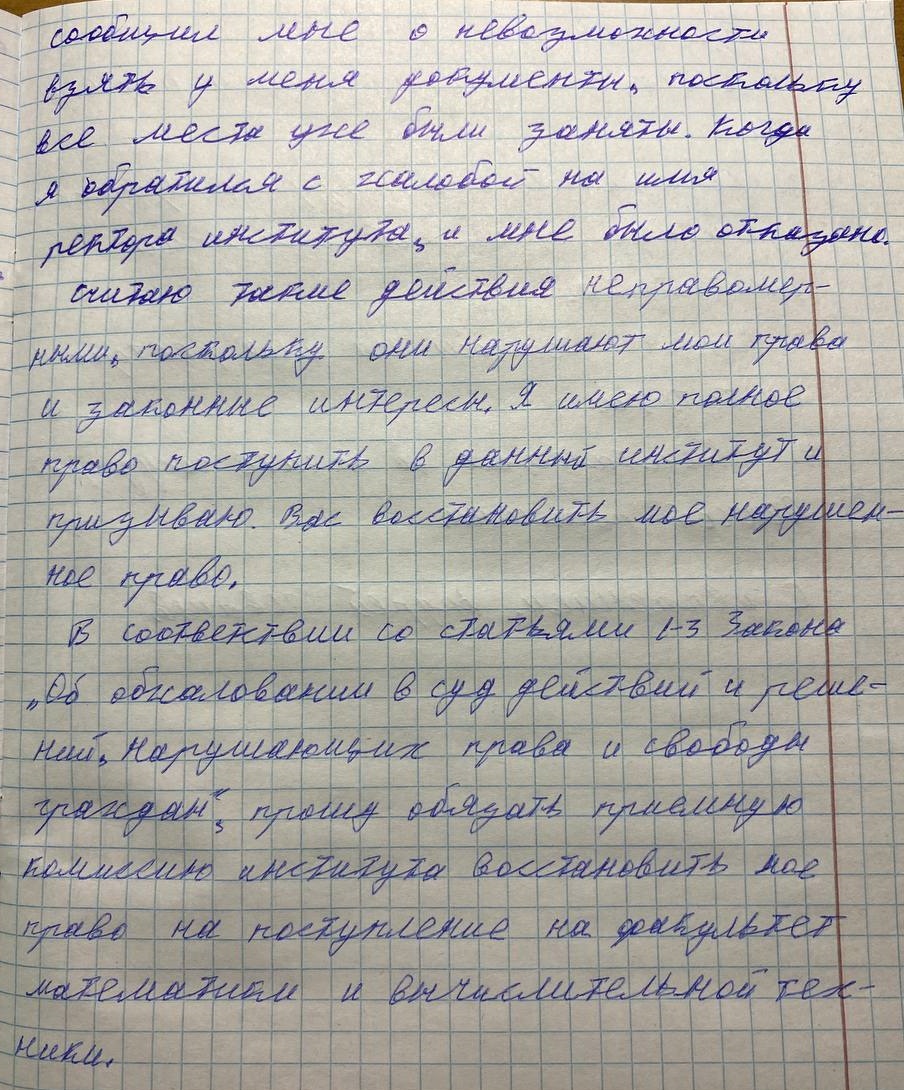 сообщил мне о невозможности
взять у меня документы, поскольку
все места уже были заняты. Когда
я обратился с жалобой на имя
ректора института, и мне было отказано.
Считаю такие действия неправомер-
ными, поскольку они нарушают мои права
и законные интересы. Я имею полное
право поступить в данный институт и
призываю. Вас восстановить мое нарушен-
ное право.
В соответствии со статьями 1-3 Закона
„Об обжаловании в суд действий и реше-
ний, нарушающих права и свободы
граждан", прошу обязать приемную
комиссию института восстановить мое
право на поступление на факультет
математики и вычислительной тех-
ники.